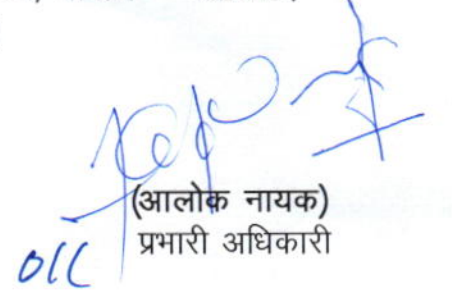 (आलोक नायक)
प्रभारी अधिकारी
OIC